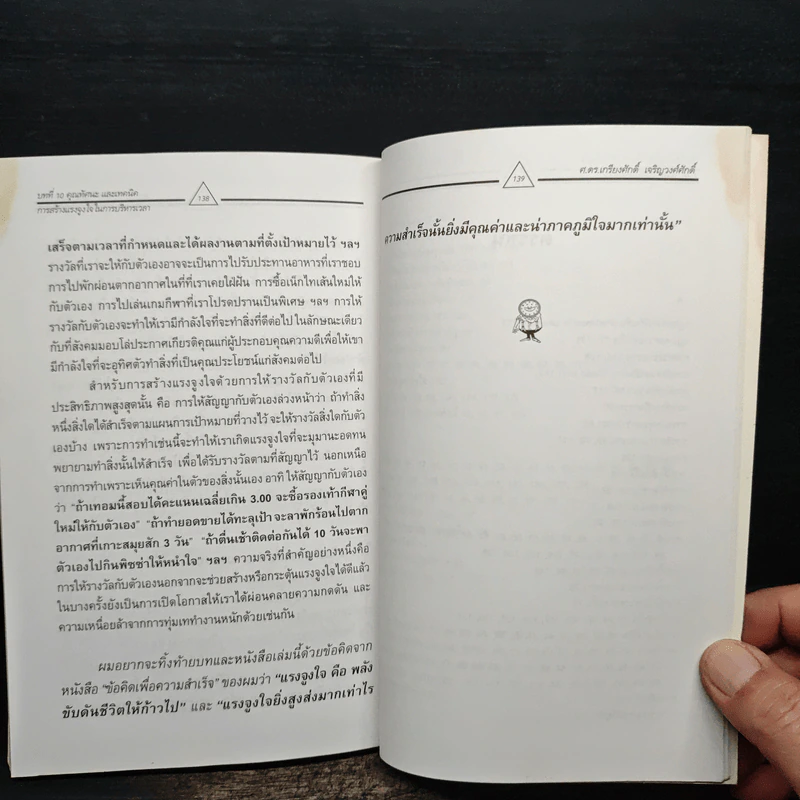 บทที่ 10 คุณทัศนะ และเทคนิค
การสร้างแรงจูงใจในการบริหารเวลา
138
เสร็จตามเวลาที่กำหนดและได้ผลงานตามที่ตั้งเป้าหมายไว้ ฯลฯ
รางวัลที่เราจะให้กับตัวเองอาจจะเป็นการไปรับประทานอาหารที่เราชอบ
การไปพักผ่อนตากอากาศในที่ที่เราเคยใฝ่ฝัน การซื้อเน็กไทเส้นใหม่ให้
กับตัวเอง การไปเล่นเกมกีฬาที่เราโปรดปรานเป็นพิเศษ ฯลฯ การให้
รางวัลกับตัวเองจะทำให้เรามีกำลังใจที่จะทำสิ่งที่ดีต่อไป ในลักษณะเดียว
กับที่สังคมมอบโล่ประกาศเกียรติคุณแก่ผู้ประกอบคุณความดีเพื่อให้เขา
มีกำลังใจที่จะอุทิศตัวทำสิ่งที่เป็นคุณประโยชน์แก่สังคมต่อไป
สำหรับการสร้างแรงจูงใจด้วยการให้รางวัลกับตัวเองที่มี
ประสิทธิภาพสูงสุดนั้น คือ การให้สัญญากับตัวเองล่วงหน้าว่า ถ้าทำสิ่ง
หนึ่งสิ่งใดได้สำเร็จตามแผนการเป้าหมายที่วางไว้ จะให้รางวัลสิ่งใดกับตัว
เองบ้าง เพราะการทำเช่นนี้จะทำให้เราเกิดแรงจูงใจที่จะมุมานะอดทน
พยายามทำสิ่งนั้นให้สำเร็จ เพื่อได้รับรางวัลตามที่สัญญาไว้ นอกเหนือ
จากการทำเพราะเห็นคุณค่าในตัวของสิ่งนั้นเอง อาทิ ให้สัญญากับตัวเอง
ว่า "ถ้าเทอมนี้สอบได้คะแนนเฉลี่ยเกิน 3.00 จะซื้อรองเท้ากีฬาคู่
ใหม่ให้กับตัวเอง" "ถ้าทำยอดขายได้ทะลุเป้า จะลาพักร้อนไปตาก
อากาศที่เกาะสมุยสัก 3 วัน" "ถ้าตื่นเช้าติดต่อกันได้ 10 วันจะพา
ตัวเองไปกินพิซซ่าให้หนำใจ" ฯลฯ ความจริงที่สำคัญอย่างหนึ่งคือ
การให้รางวัลกับตัวเองนอกจากจะช่วยสร้างหรือกระตุ้นแรงจูงใจได้ดีแล้ว
ในบางครั้งยังเป็นการเปิดโอกาสให้เราได้ผ่อนคลายความกดดัน และ
ความเหนื่อยล้าจากการทุ่มเททำงานหนักด้วยเช่นกัน
ผมอยากจะทิ้งท้ายบทและหนังสือเล่มนี้ด้วยข้อคิดจาก
หนังสือ "ข้อคิดเพื่อความสำเร็จ" ของผมว่า "แรงจูงใจ คือ พลัง
ขับดันชีวิตให้ก้าวไป" และ "แรงจูงใจยิ่งสูงส่งมากเท่าไร
139
ศ.ดร.เกรียงศักดิ์ เจริญวงศ์ศักดิ์
ความสำเร็จนั้นยิ่งมีคุณค่าและน่าภาคภูมิใจมากเท่านั้น"